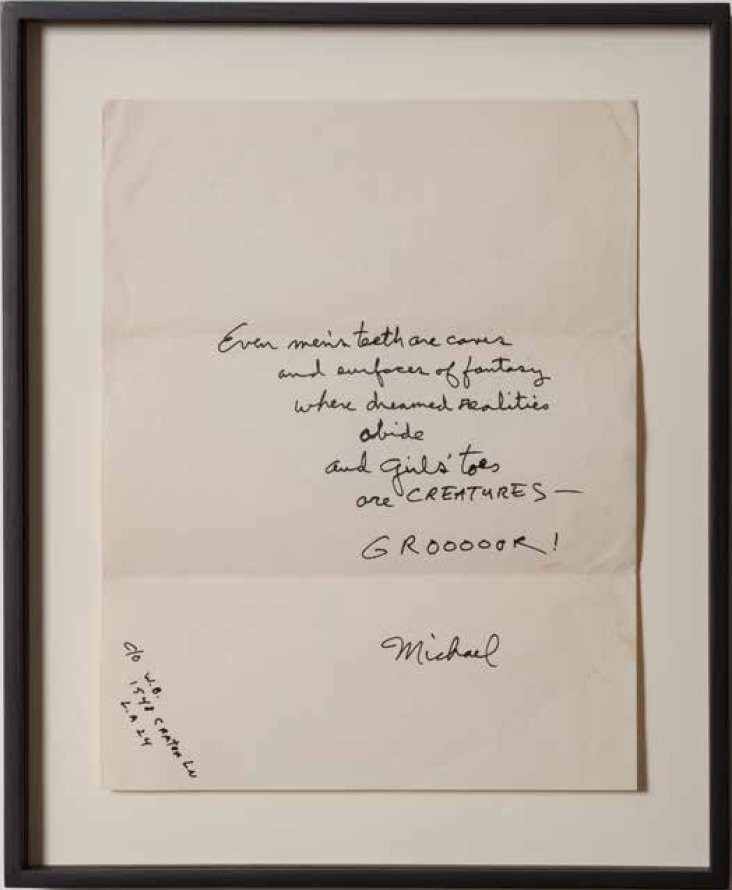 Even men's teeth are caves
and surfaces of fantasy
where dreamed realities
abide
and girls' toes
are CREATURES—
GROOOOOR!
Michael
c/o W.B.
1548 CRATER LN
L.A 24